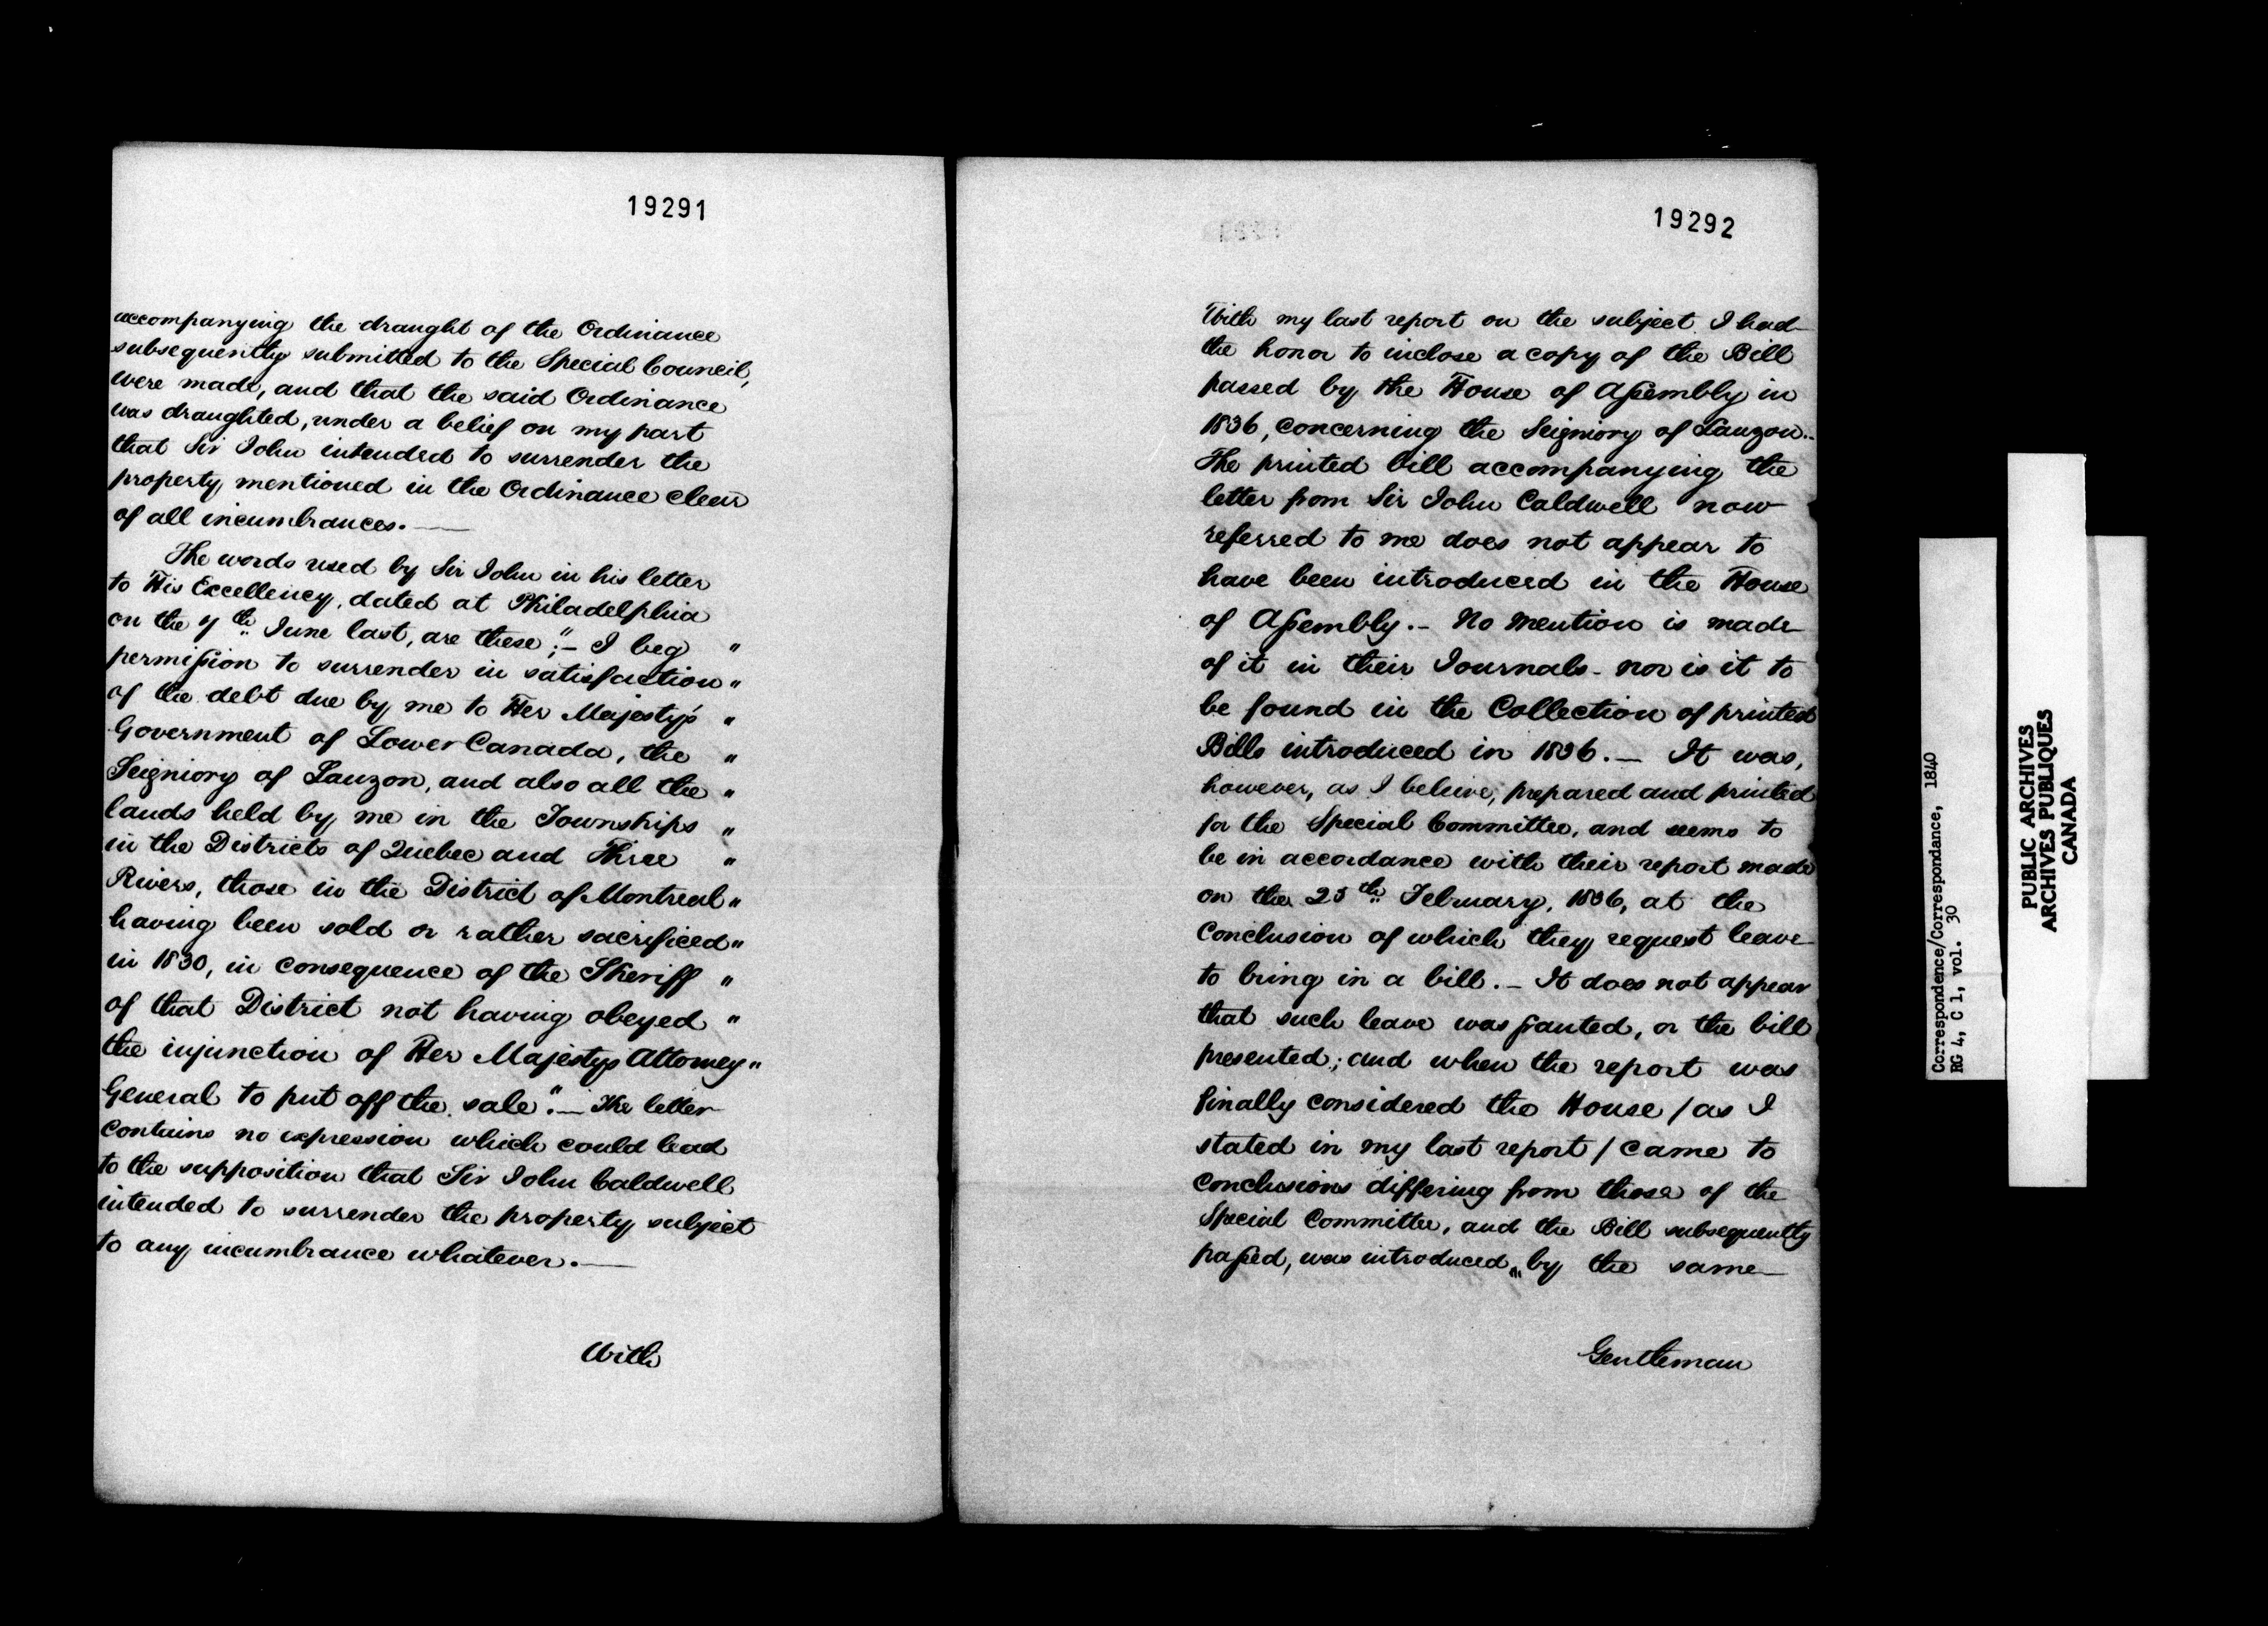 19291
accompanying the draught of the Ordinance
subsequently submitted to the Special Council,
were made, and that the said Ordinance
was draughted, under a belief on my part
that Sir John intended to surrender the
property mentioned in the Ordinance clear
of all incumbrances. —
The words used by Sir John in his letter
to His Excellency, dated at Philadelphia
on the 7th June last, are these; – "I beg "
permission to surrender in satisfaction "
of the debt due by me to Her Majesty's "
Government of Lower Canada, the "
Seigniory of Lauzon, and also all the "
lands held by me in the Townships "
in the Districts of Quebec and Three "
Rivers, those in the District of Montreal "
having been sold or rather sacrificed "
in 1830, in consequence of the Sheriff "
of that District not having obeyed "
the injunction of Her Majestys Attorney "
General to put off the sale". — The letter
contains no expression which could lead
to the supposition that Sir John Caldwell
intended to surrender the property subject
to any incumbrance whatever. —
With
19292
With my last report on the subject I had
the honor to inclose a copy of the Bill
passed by the House of Assembly in
1836, concerning the Seigniory of Lauzon..
The printed bill accompanying the
letter from Sir John Caldwell now
referred to me does not appear to
have been introduced in the House
of Assembly. – No mention is made
of it in their Journals – nor is it to
be found in the Collection of printed
Bills introduced in 1836. — It was,
however, as I believe, prepared and printed
for the Special Committee, and seems to
be in accordance with their report made
on the 25th February, 1836, at the
conclusion of which they request leave
to bring in a bill. – It does not appear
that such leave was granted, or the bill
presented; and when the report was
finally considered the House / as I
stated in my last report / came to
conclusions differing from those of the
Special Committee, and the Bill subsequently
passed, was introduced, by the same
Gentleman
Correspondence/Correspondance, 1840
RG 4, C 1, vol. 30
PUBLIC ARCHIVES
ARCHIVES PUBLIQUES
CANADA